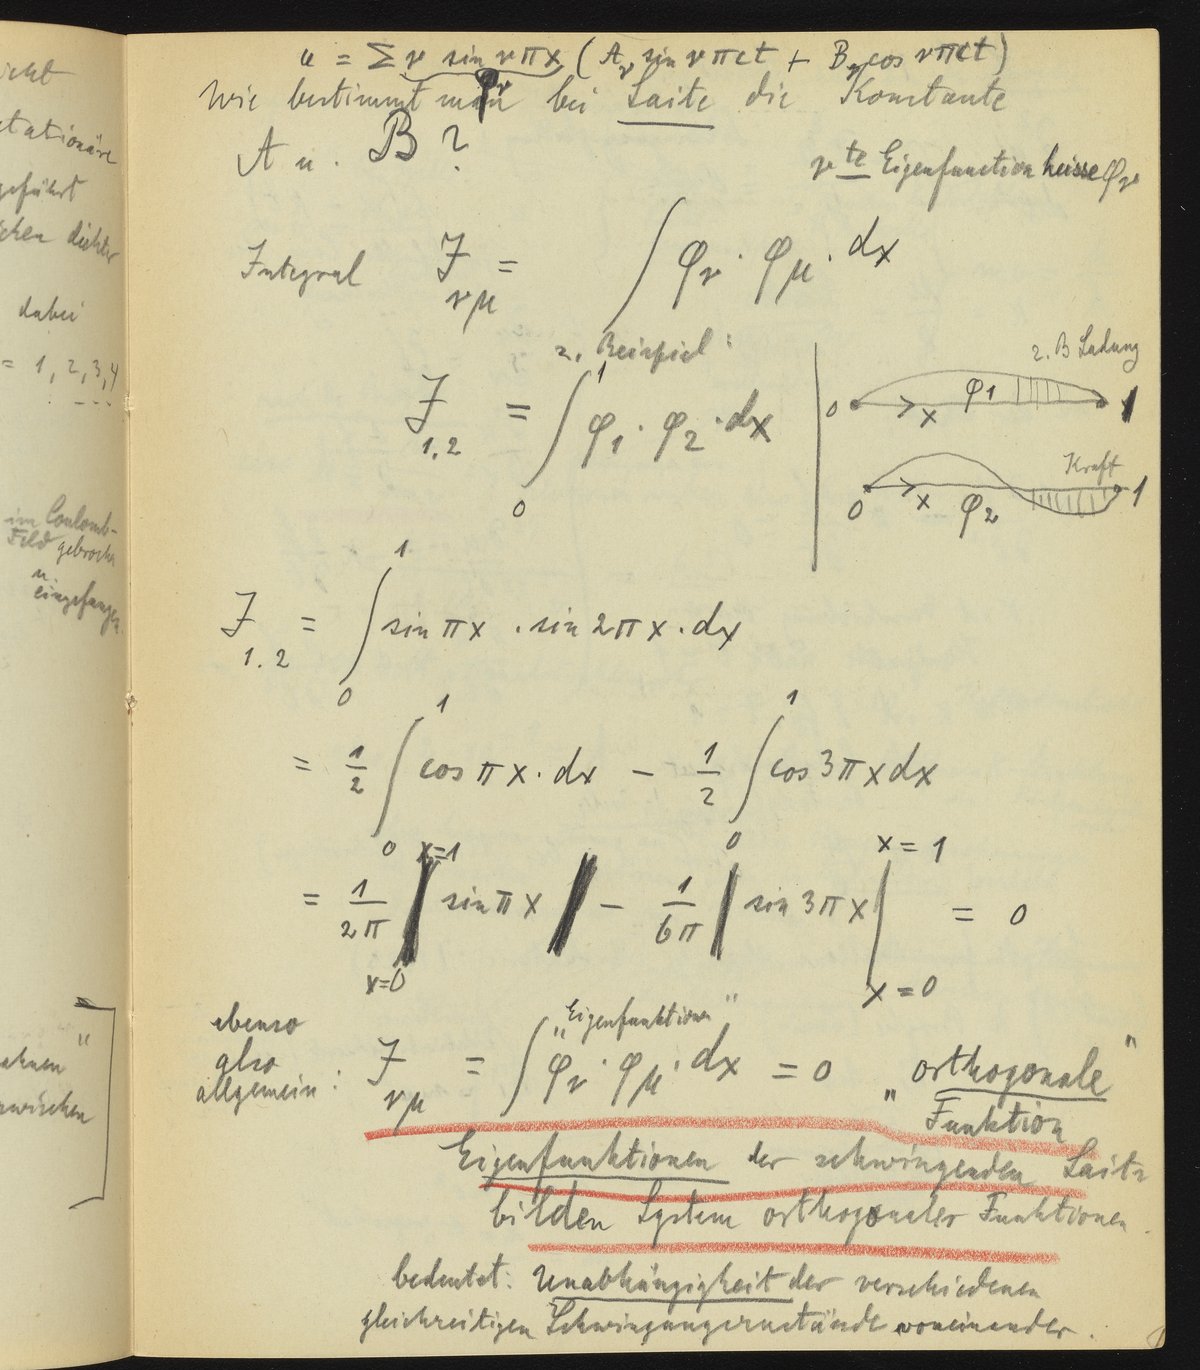 icht
tationäre
geführt
dichter
dabei
= 1, 2, 3, 4
im Coulomb-
Feld gebroch
u.
eingefangen
ehnen"
zwischen
u = Σ ν sin νπx (Aν sin νπct + Bν cos νπct)
φν
Wie bestimmt man bei Saite die Konstante
A u. B ?
ν te Eigenfunction heisse φν
Integral J νμ = ∫ φν · φμ · dx
z. Beispiel:
J 1.2 = ∫₀¹ φ1 · φ2 · dx
z. B Ladung
0 x φ1 1
Kraft
0 x φ2 1
J 1.2 = ∫₀¹ sin πx · sin 2πx · dx
= 1/2 ∫₀¹ cos πx · dx − 1/2 ∫₀¹ cos 3πx dx
= 1/2π | sin πx | x=1 x=0 − 1/6π | sin 3πx | x=1 x=0 = 0
ebenso
also
allgemein:
"Eigenfunktionen"
J νμ = ∫ φν · φμ · dx = 0 „orthogonale"
Funktion
Eigenfunktionen der schwingenden Saite
bilden System orthogonaler Funktionen.
bedeutet: Unabhängigkeit der verschiedenen
gleichzeitigen Schwingungszustände voneinander.